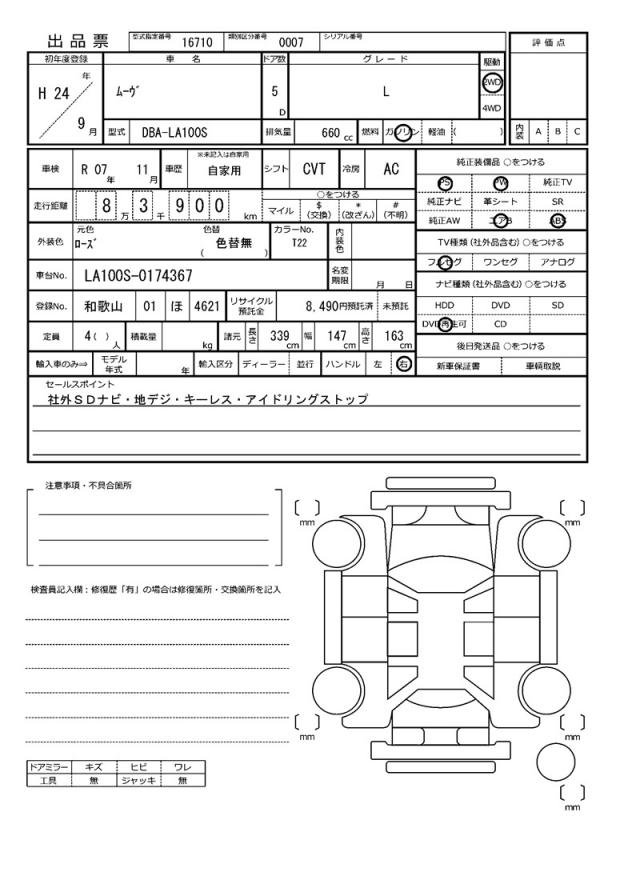 出品票 型式指定番号 16710 類別区分番号 0007 シリアル番号
評価点
初年度登録 車名 ドア数 グレード 駆動
H 24 年 ムーヴ 5 D L 2WD
4WD
9 月 型式 DBA-LA100S 排気量 660 cc 燃料 ガソリン 軽油 ( )
内装 A B C
車検 R 07 年 11 月 車歴 ※未記入は自家用 自家用 シフト CVT 冷房 AC
走行距離 8 万 3 千 9 0 0 km ○をつける
マイル $(交換) *(改ざん) #(不明)
外装色 元色 ローズ 色替 ( 色替無 ) カラーNo. T22 内装色
車台No. LA100S-0174367 名変期限 月 日
登録No. 和歌山 01 ほ 4621 リサイクル預託金 8,490円預託済 未預託
定員 4( ) 人 積載量 kg 諸元 長さ 339 cm 幅 147 cm 高さ 163 cm
輸入車のみ⇒ モデル年式 年 輸入区分 ディーラー 並行 ハンドル 左 右
純正装備品 ○をつける
PS PW 純正TV
純正ナビ 革シート SR
純正AW エアB ABS
TV種類 (社外品含む) ○をつける
フルセグ ワンセグ アナログ
ナビ種類 (社外品含む) ○をつける
HDD DVD SD
DVD再生可 CD
後日発送品 ○をつける
新車保証書 車輌取説
セールスポイント
社外SDナビ・地デジ・キーレス・アイドリングストップ
注意事項・不具合箇所
検査員記入欄:修復歴「有」の場合は修復箇所・交換箇所を記入
[ ] mm
[ ] mm
[ ] mm
[ ] mm
[ ] mm
ドアミラー キズ ヒビ ワレ
工具 無 ジャッキ 無